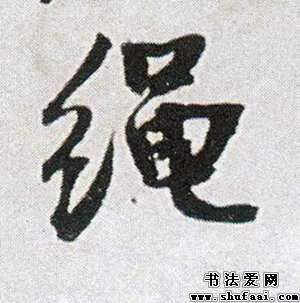 绳
书法爱网
www.shufaai.com